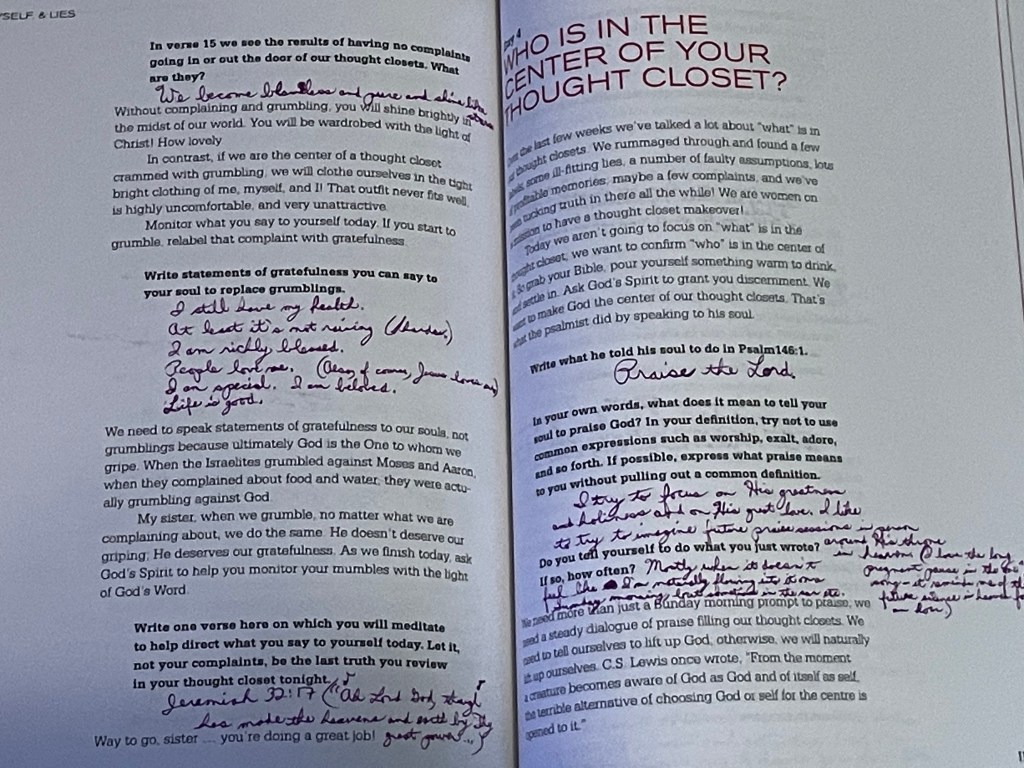 SELF & LIES
In verse 15 we see the results of having no complaints
going in or out the door of our thought closets. What
are they?
We become blameless and pure and shine like
stars
Without complaining and grumbling, you will shine brightly in
the midst of our world. You will be wardrobed with the light of
Christ! How lovely
In contrast, if we are the center of a thought closet
crammed with grumbling, we will clothe ourselves in the tight
bright clothing of me, myself, and I! That outfit never fits well,
is highly uncomfortable, and very unattractive.
Monitor what you say to yourself today. If you start to
grumble, relabel that complaint with gratefulness.
Write statements of gratefulness you can say to
your soul to replace grumblings.
I still have my health.
At least it's not raining
I am richly blessed.
People love me. (Okay, of course, Jesus loves me)
I am special. I am beloved.
Life is good.
We need to speak statements of gratefulness to our souls, not
grumblings because ultimately God is the One to whom we
gripe. When the Israelites grumbled against Moses and Aaron,
when they complained about food and water, they were actu-
ally grumbling against God.
My sister, when we grumble, no matter what we are
complaining about, we do the same. He doesn't deserve our
griping; He deserves our gratefulness. As we finish today, ask
God's Spirit to help you monitor your mumbles with the light
of God's Word.
Write one verse here on which you will meditate
to help direct what you say to yourself today. Let it,
not your complaints, be the last truth you review
in your thought closet tonight.
Jeremiah 32:17 ("Ah Lord God, thou
has made the heavens and earth by thy
great power...")
Way to go, sister ... you're doing a great job!
Day 4
WHO IS IN THE
CENTER OF YOUR
THOUGHT CLOSET?
Over the last few weeks we've talked a lot about "what" is in
our thought closets. We rummaged through and found a few
labels, some ill-fitting lies, a number of faulty assumptions, lots
of profitable memories, maybe a few complaints, and we've
been tucking truth in there all the while! We are women on
a mission to have a thought closet makeover!
Today we aren't going to focus on "what" is in the
thought closet; we want to confirm "who" is in the center of
it. So grab your Bible, pour yourself something warm to drink,
and settle in. Ask God's Spirit to grant you discernment. We
want to make God the center of our thought closets. That's
what the psalmist did by speaking to his soul.
Write what he told his soul to do in Psalm 146:1.
Praise the Lord.
In your own words, what does it mean to tell your
soul to praise God? In your definition, try not to use
common expressions such as worship, exalt, adore,
and so forth. If possible, express what praise means
to you without pulling out a common definition.
I try to focus on His greatness
and holiness and on His great love. I like
to try to imagine future praise sessions in person
around His throne
in heaven (I love the long
pregnant pause in the
song - it reminds me of the
future silence in heaven for
an hour)
Do you tell yourself to do what you just wrote?
If so, how often?
Mostly when it doesn't
feel like I'm naturally flowing into it on a
Sunday morning, but sometimes in the car etc.
We need more than just a Sunday morning prompt to praise; we
need a steady dialogue of praise filling our thought closets. We
need to tell ourselves to lift up God; otherwise, we will naturally
lift up ourselves. C.S. Lewis once wrote, "From the moment
a creature becomes aware of God as God and of itself as self,
the terrible alternative of choosing God or self for the centre is
opened to it."